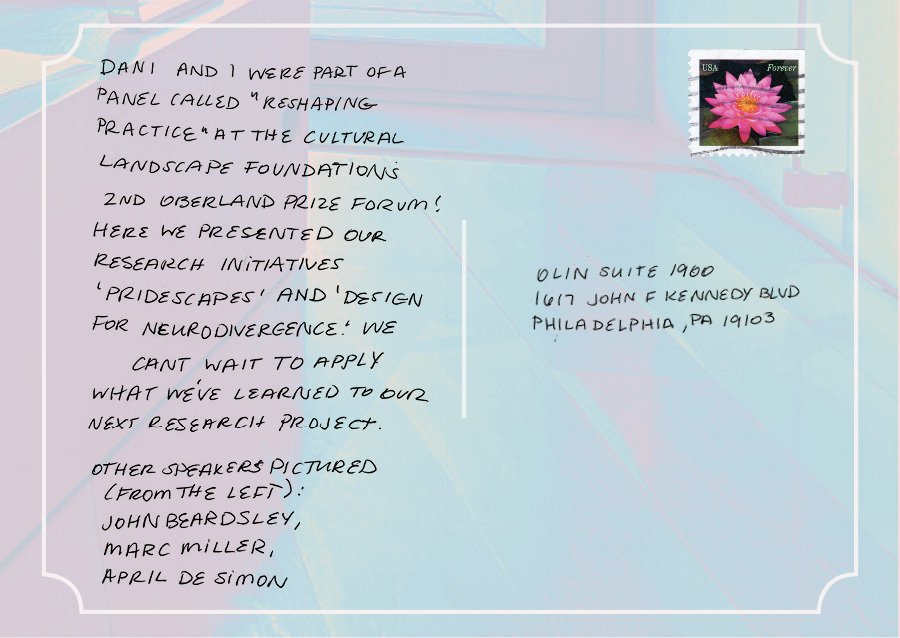 DANI AND I WERE PART OF A
PANEL CALLED "RESHAPING
PRACTICE" AT THE CULTURAL
LANDSCAPE FOUNDATIONS
2ND OBERLAND PRIZE FORUM!
HERE WE PRESENTED OUR
RESEARCH INITIATIVES
'PRIDESCAPES' AND 'DESIGN
FOR NEURODIVERGENCE.' WE
CANT WAIT TO APPLY
WHAT WE'VE LEARNED TO OUR
NEXT RESEARCH PROJECT.
OTHER SPEAKERS PICTURED
(FROM THE LEFT):
JOHN BEARDSLEY,
MARC MILLER,
APRIL DE SIMON
USA Forever
OLIN SUITE 1900
1617 JOHN F KENNEDY BLVD
PHILADELPHIA, PA 19103